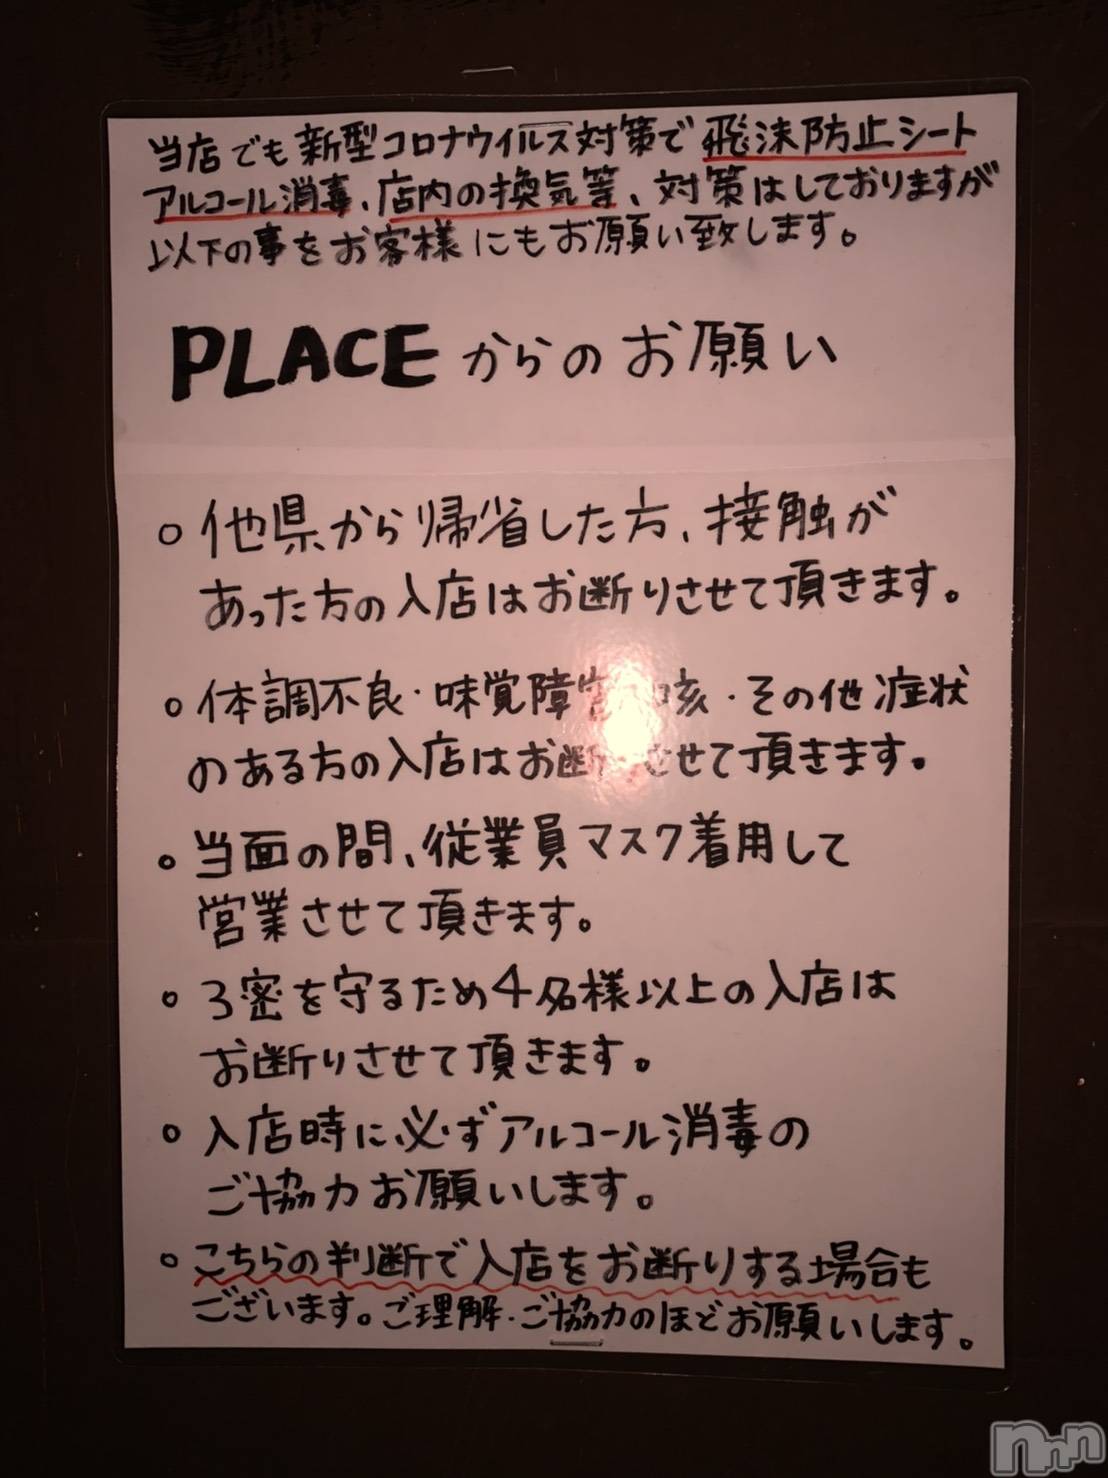 当店でも新型コロナウイルス対策で飛沫防止シート
アルコール消毒、店内の換気等、対策はしておりますが
以下の事をお客様にもお願い致します。
PLACEからのお願い
○他県から帰省した方、接触が
あった方の入店はお断りさせて頂きます。
○体調不良・味覚障害・咳・その他症状
のある方の入店はお断りさせて頂きます。
○当面の間、従業員マスク着用して
営業させて頂きます。
○3密を守るため4名様以上の入店は
お断りさせて頂きます。
○入店時に必ずアルコール消毒の
ご協力お願いします。
○こちらの判断で入店をお断りする場合も
ございます。ご理解・ご協力のほどお願いします。
nnn